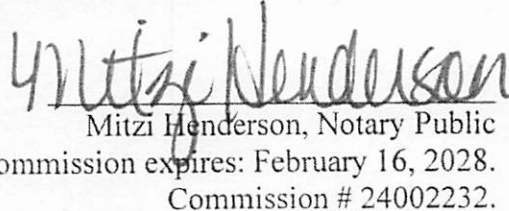 Mitzi Henderson
Mitzi Henderson, Notary Public
ommission expires: February 16, 2028.
Commission # 24002232.